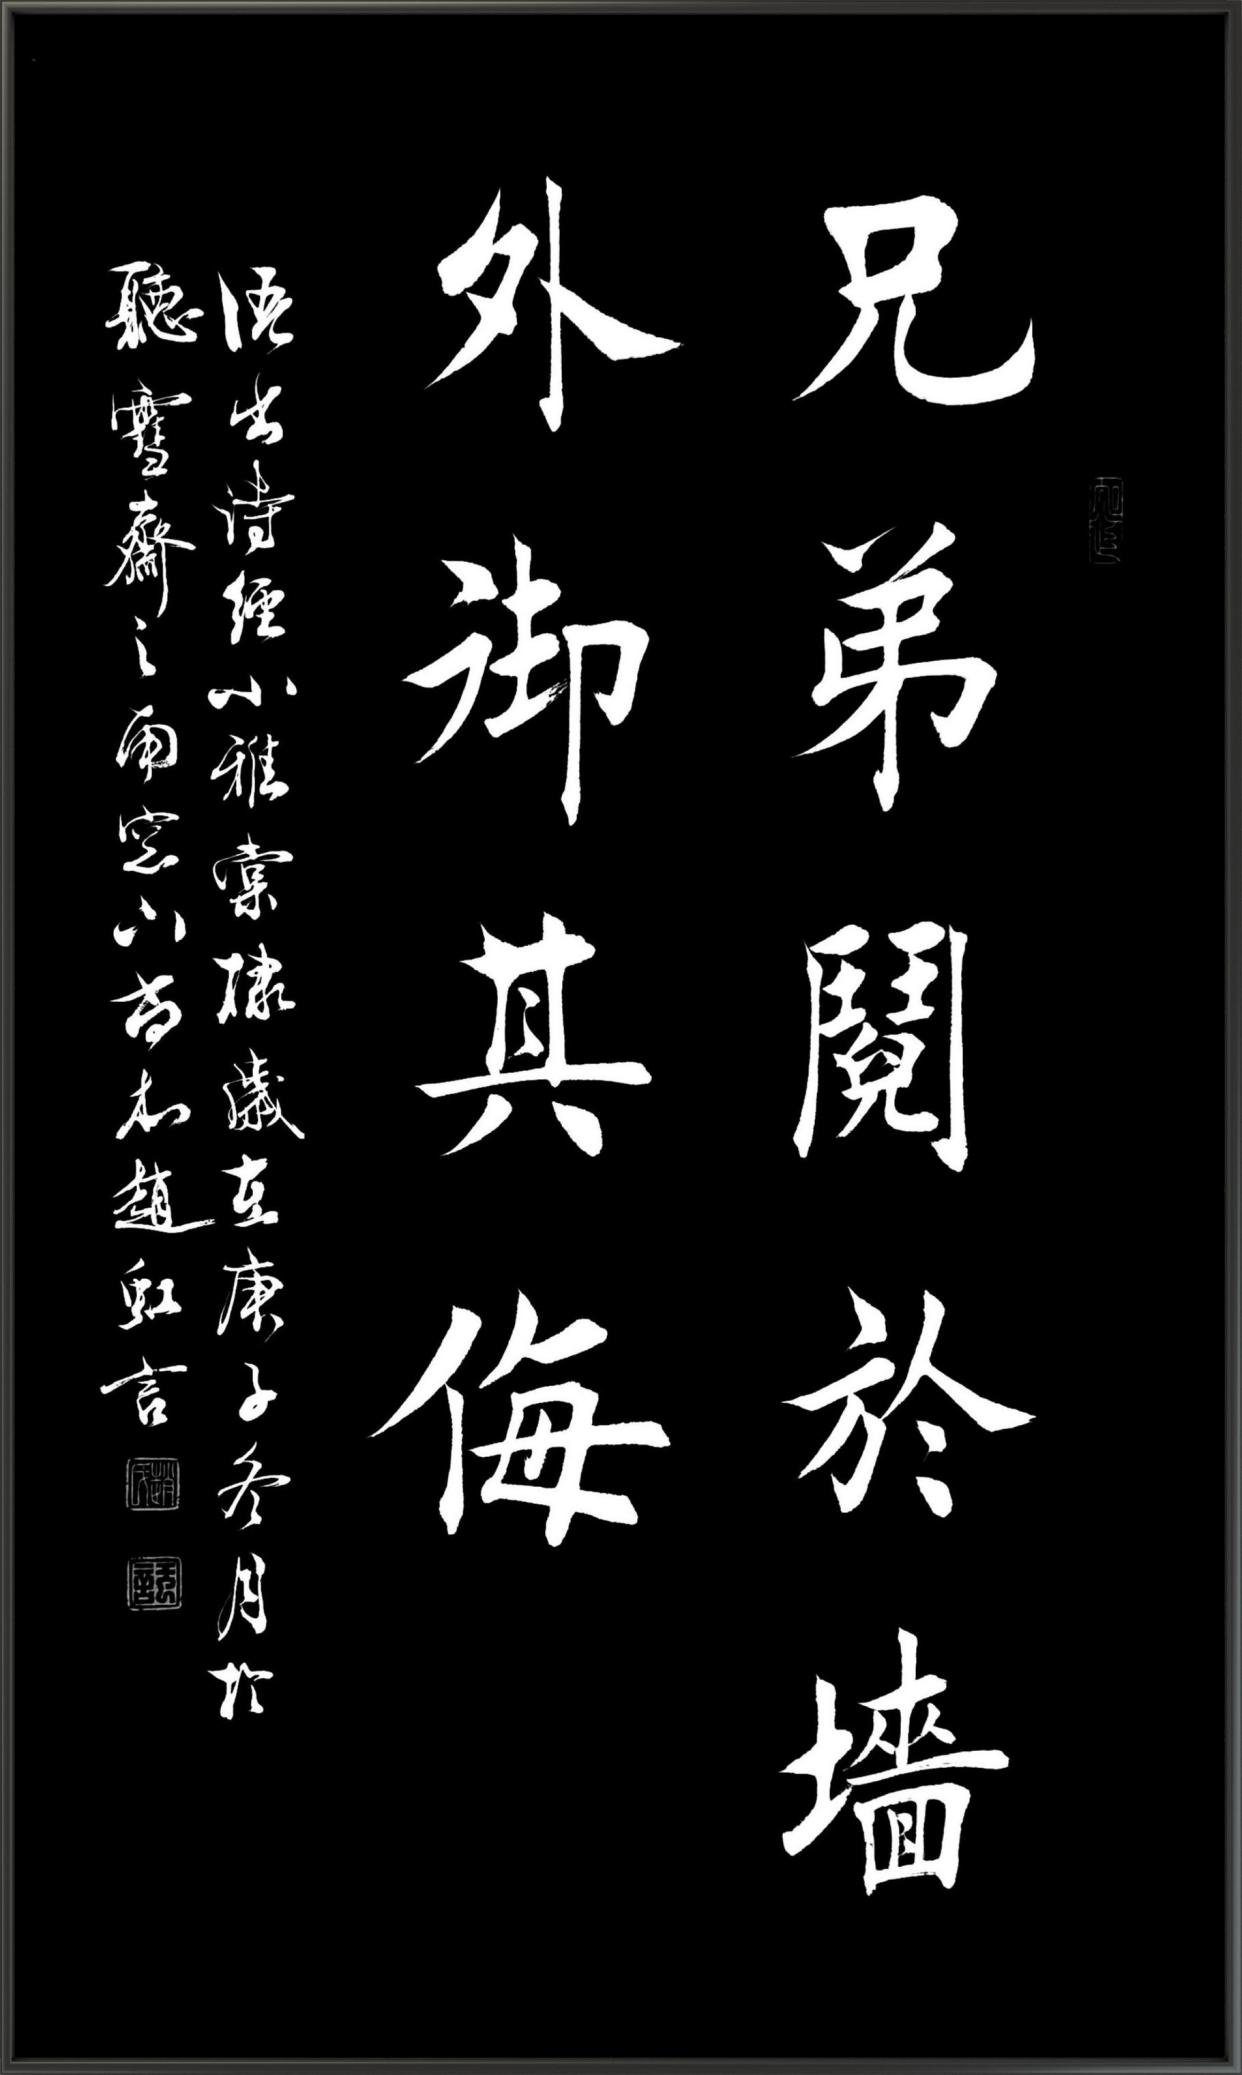 兄弟鬩於墻
外御其侮
語出詩經小雅棠棣歲在庚子冬月於
聽雪齋之南窓下古木趙虹言